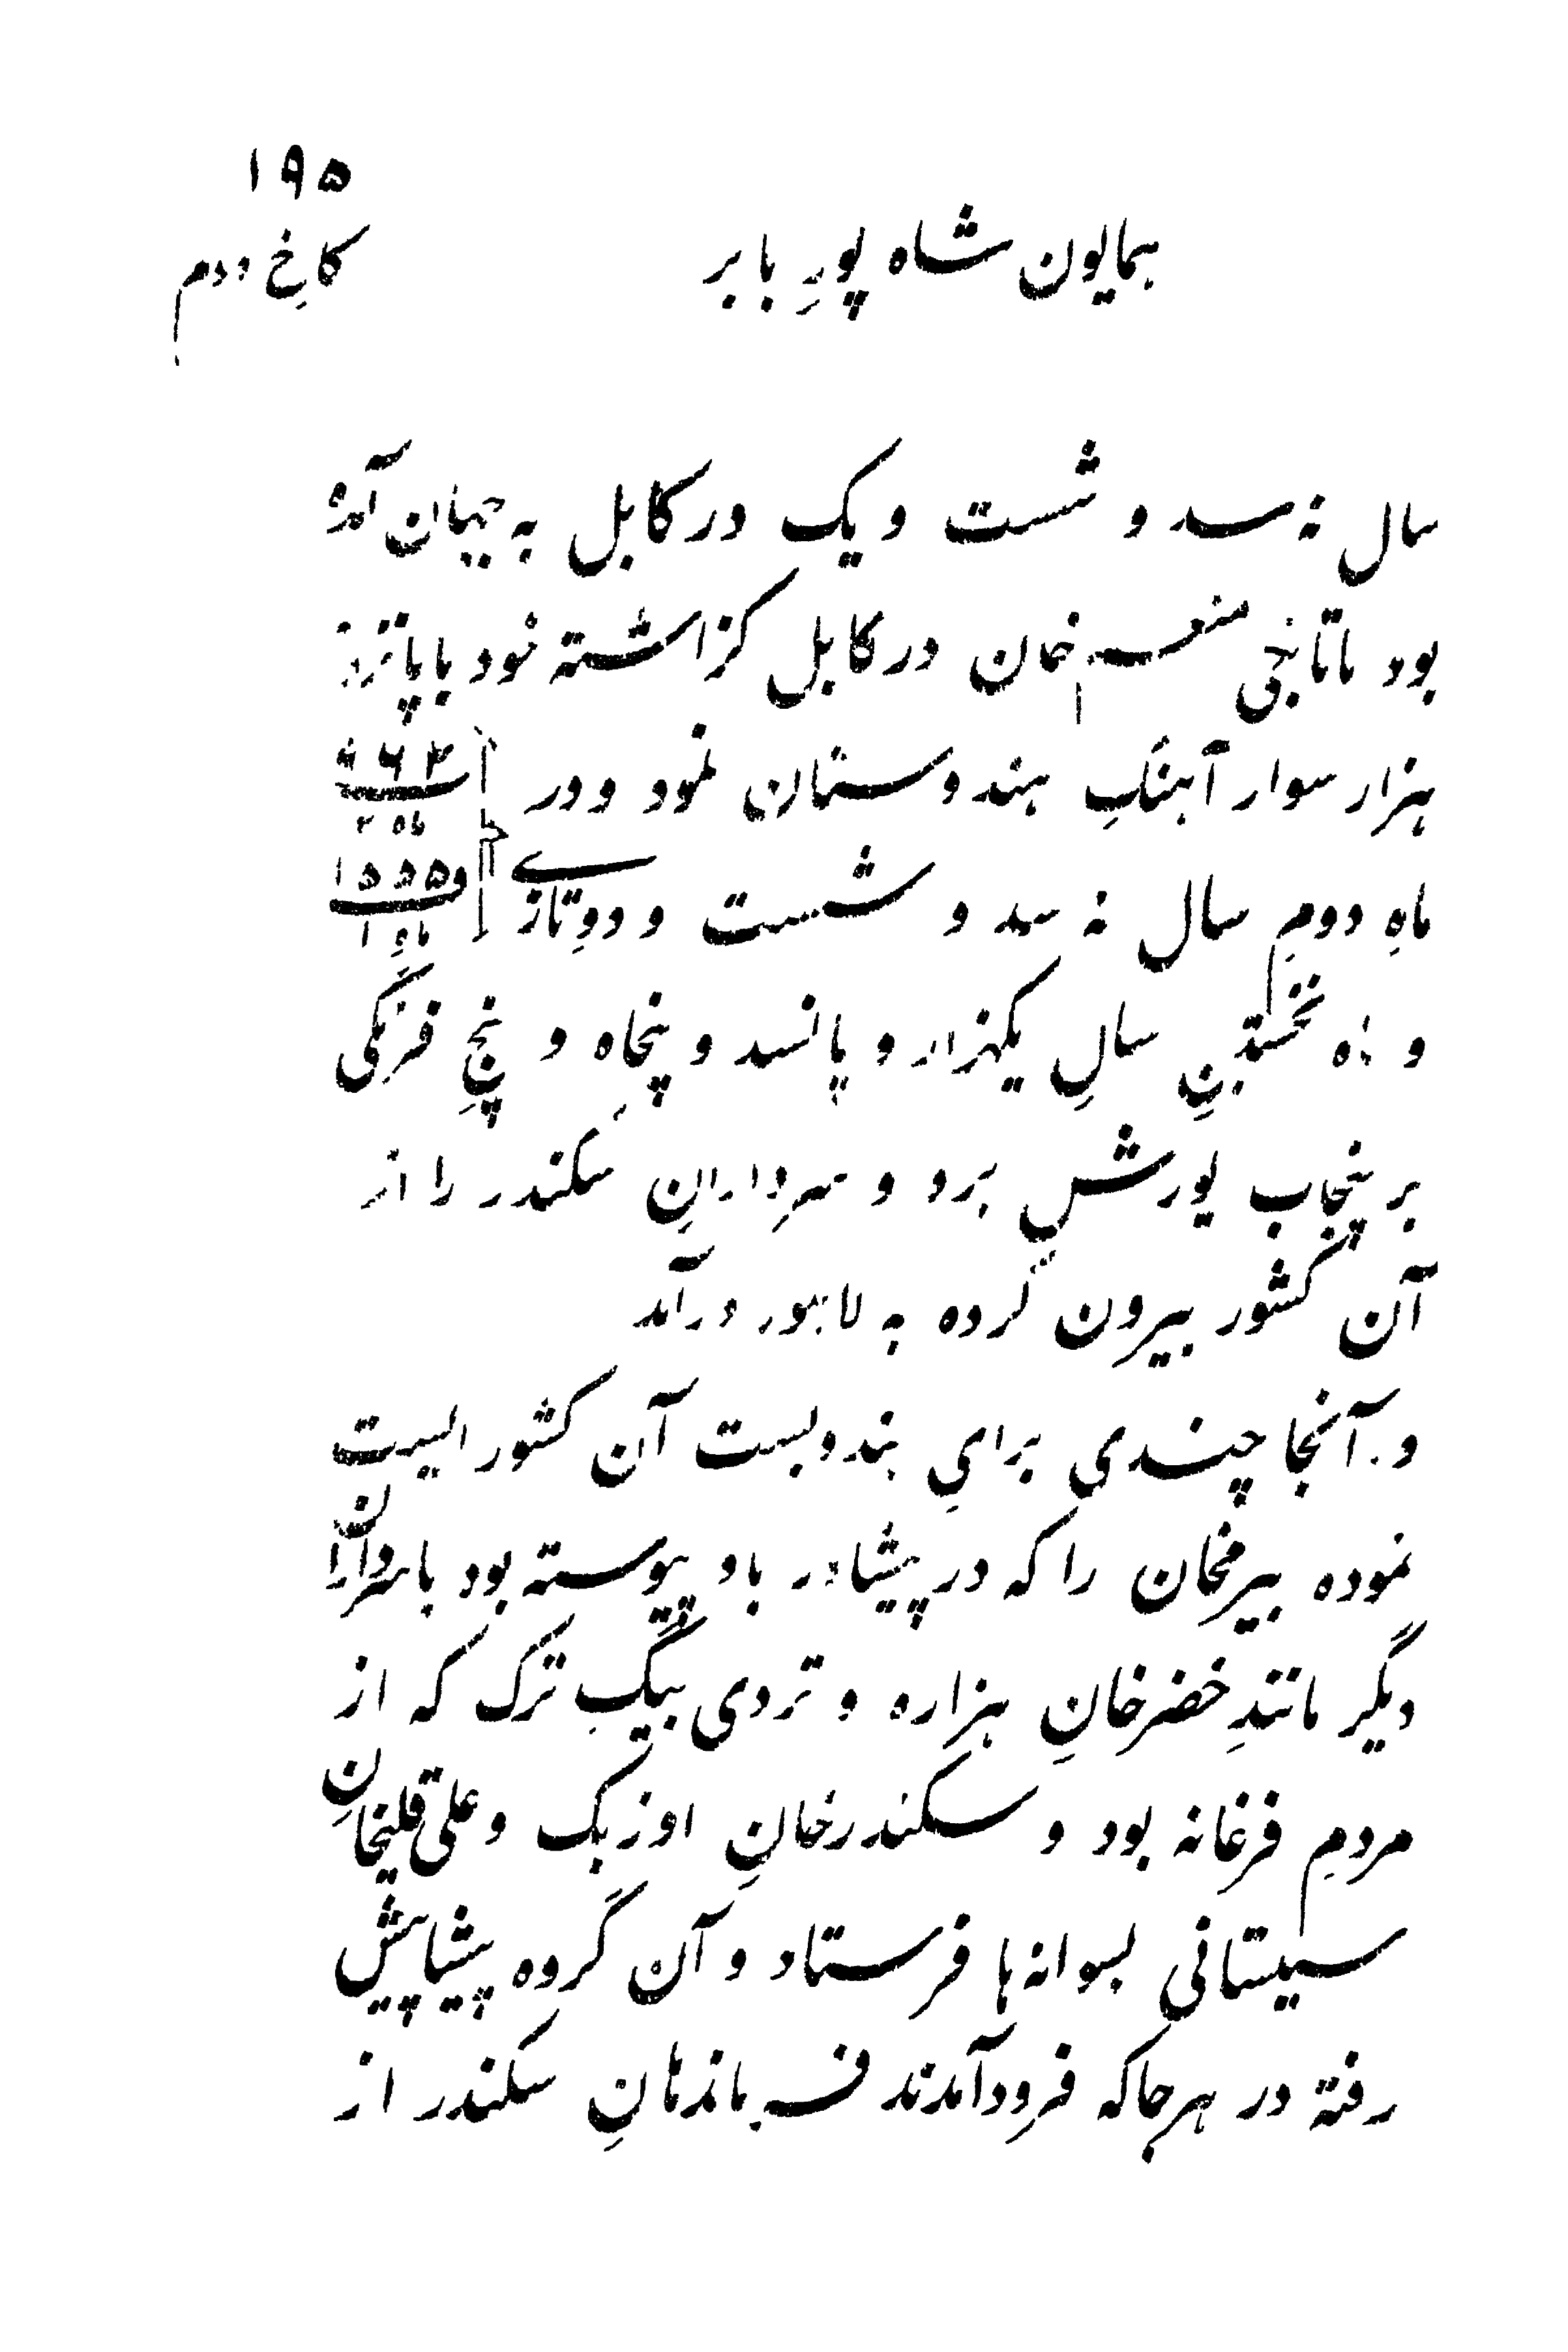 ۱۹۵
همایون شاه پورِ بابر
کاخِ دوم
سال نه سد و شست و یک در کابل به جهان آمده
بود با تابجی منعم خان در کابل گزاشته خود با پانزده
هزار سوار آهنگِ هندوستان نمود و در
۹۶۲
ماه ۲
۱۵۵۵
ماه ۱
ماهِ دومِ سال نه سد و شست و دوِ تازی
و ماه نخستینِ سالِ یکهزار و پانسد و پنجاه و پنجِ فرنگی
بر پنجاب یورش برد و سردارانِ سکندر را از
آن کشور بیرون کرده به لاهور درآمد
و آنجا چندی برایِ بندوبست آن کشور ایست
نموده بیرمخان را که در پیشاور باو پیوسته بود با سرداران
دیگر مانندِ خضرخانِ هزاره و تردی بیگ ترک که از
مردمِ فرغانه بود و سکندرخانِ اوزبک و علی قلیخانِ
سیستانی بسوانه‌ها فرستاد و آن گروه پیشاپیش
رفته در هرجا که فرود آمدند فرماندهانِ سکندر از